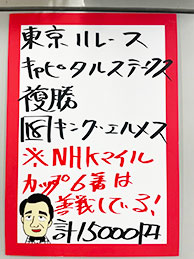 東京11レース
キャピタルステークス
複勝
18キング・エルメス
※NHKマイル
カップ6番は
善戦している!
計15000円